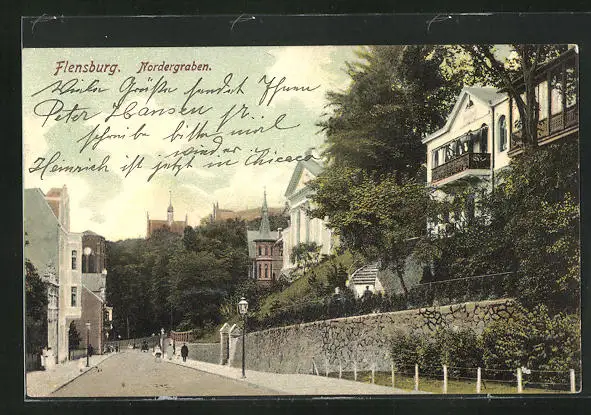 Flensburg. Nordergraben.
Viele Grüße sendet Ihnen
Peter Hansen jr.
schreibe bitte mal
wieder
Heinrich ist jetzt in Chicago